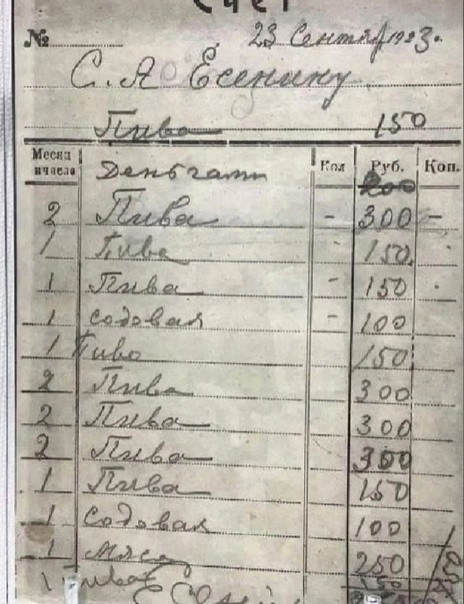 Счет
№ 23 Сентяб 1923г.
С. А Есенину
Пива 150
Месяц и число Кол Руб. Коп.
Деньгами 200
2 Пива - 300 -
1 Пива - 150
1 Пива - 150
1 содовая - 100
1 Пиво 150
2 Пива 300
2 Пива 300
2 Пива 300
1 Пива 150
1 Содовая 100
1 Мясо 250
1 Пива